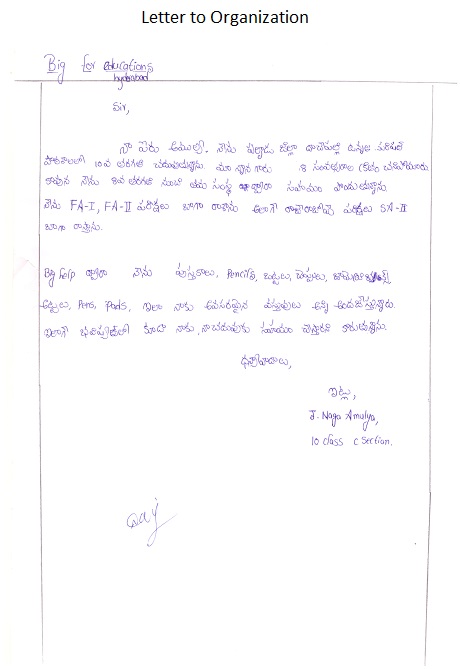 Letter to Organization
Big for educations
hyderabad
Sir,
నా పేరు అమూల్య. నేను పల్నాడు జిల్లా
10వ తరగతి చదువుతున్నాను. మా నాన్న గారు 8 సంవత్సరాల క్రితం చనిపోయారు
కావున నేను 8వ తరగతి నుండి ఈ సంస్థ ద్వారా సహాయం పొందుతున్నాను
నేను FA-I, FA-II పరీక్షలు బాగా రాశాను అలాగే రాబోయే పరీక్షలు SA-II
బాగా రాస్తాను.
Big help ద్వారా నేను పుస్తకాలు, Pencils, బట్టలు, చెప్పులు,
అట్టలు, Pens, Pads, ఇలా నాకు అవసరమైన వస్తువులు అన్ని అందజేస్తున్నారు.
ఇలాగే భవిష్యత్తులో కూడా నాకు, నా చదువుకు సహాయం చేస్తారని కోరుతున్నాను.
ధన్యవాదాలు,
ఇట్లు,
J. Naga Amulya,
10 class c section.